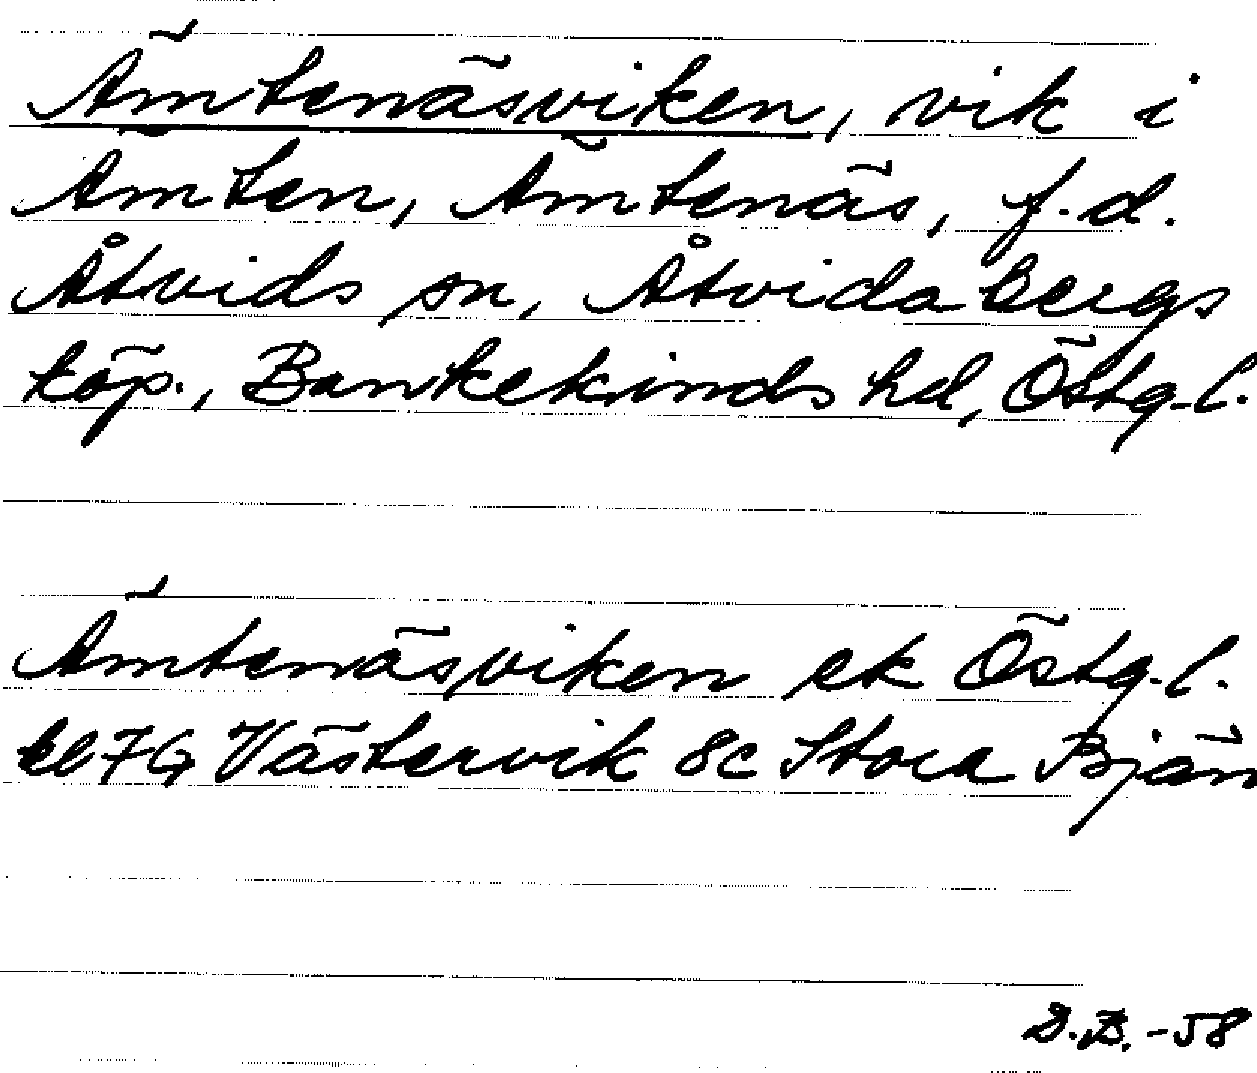 Ämtenäsviken, vik i
Ämten, Ämtenäs, f.d.
Åtvids sn, Åtvidabergs
köp., Bankekinds hd, Östg.l.
Ämtenäsviken ek Östg.l.
bl 7G Västervik 8c Stora Bjän
D.B. -58